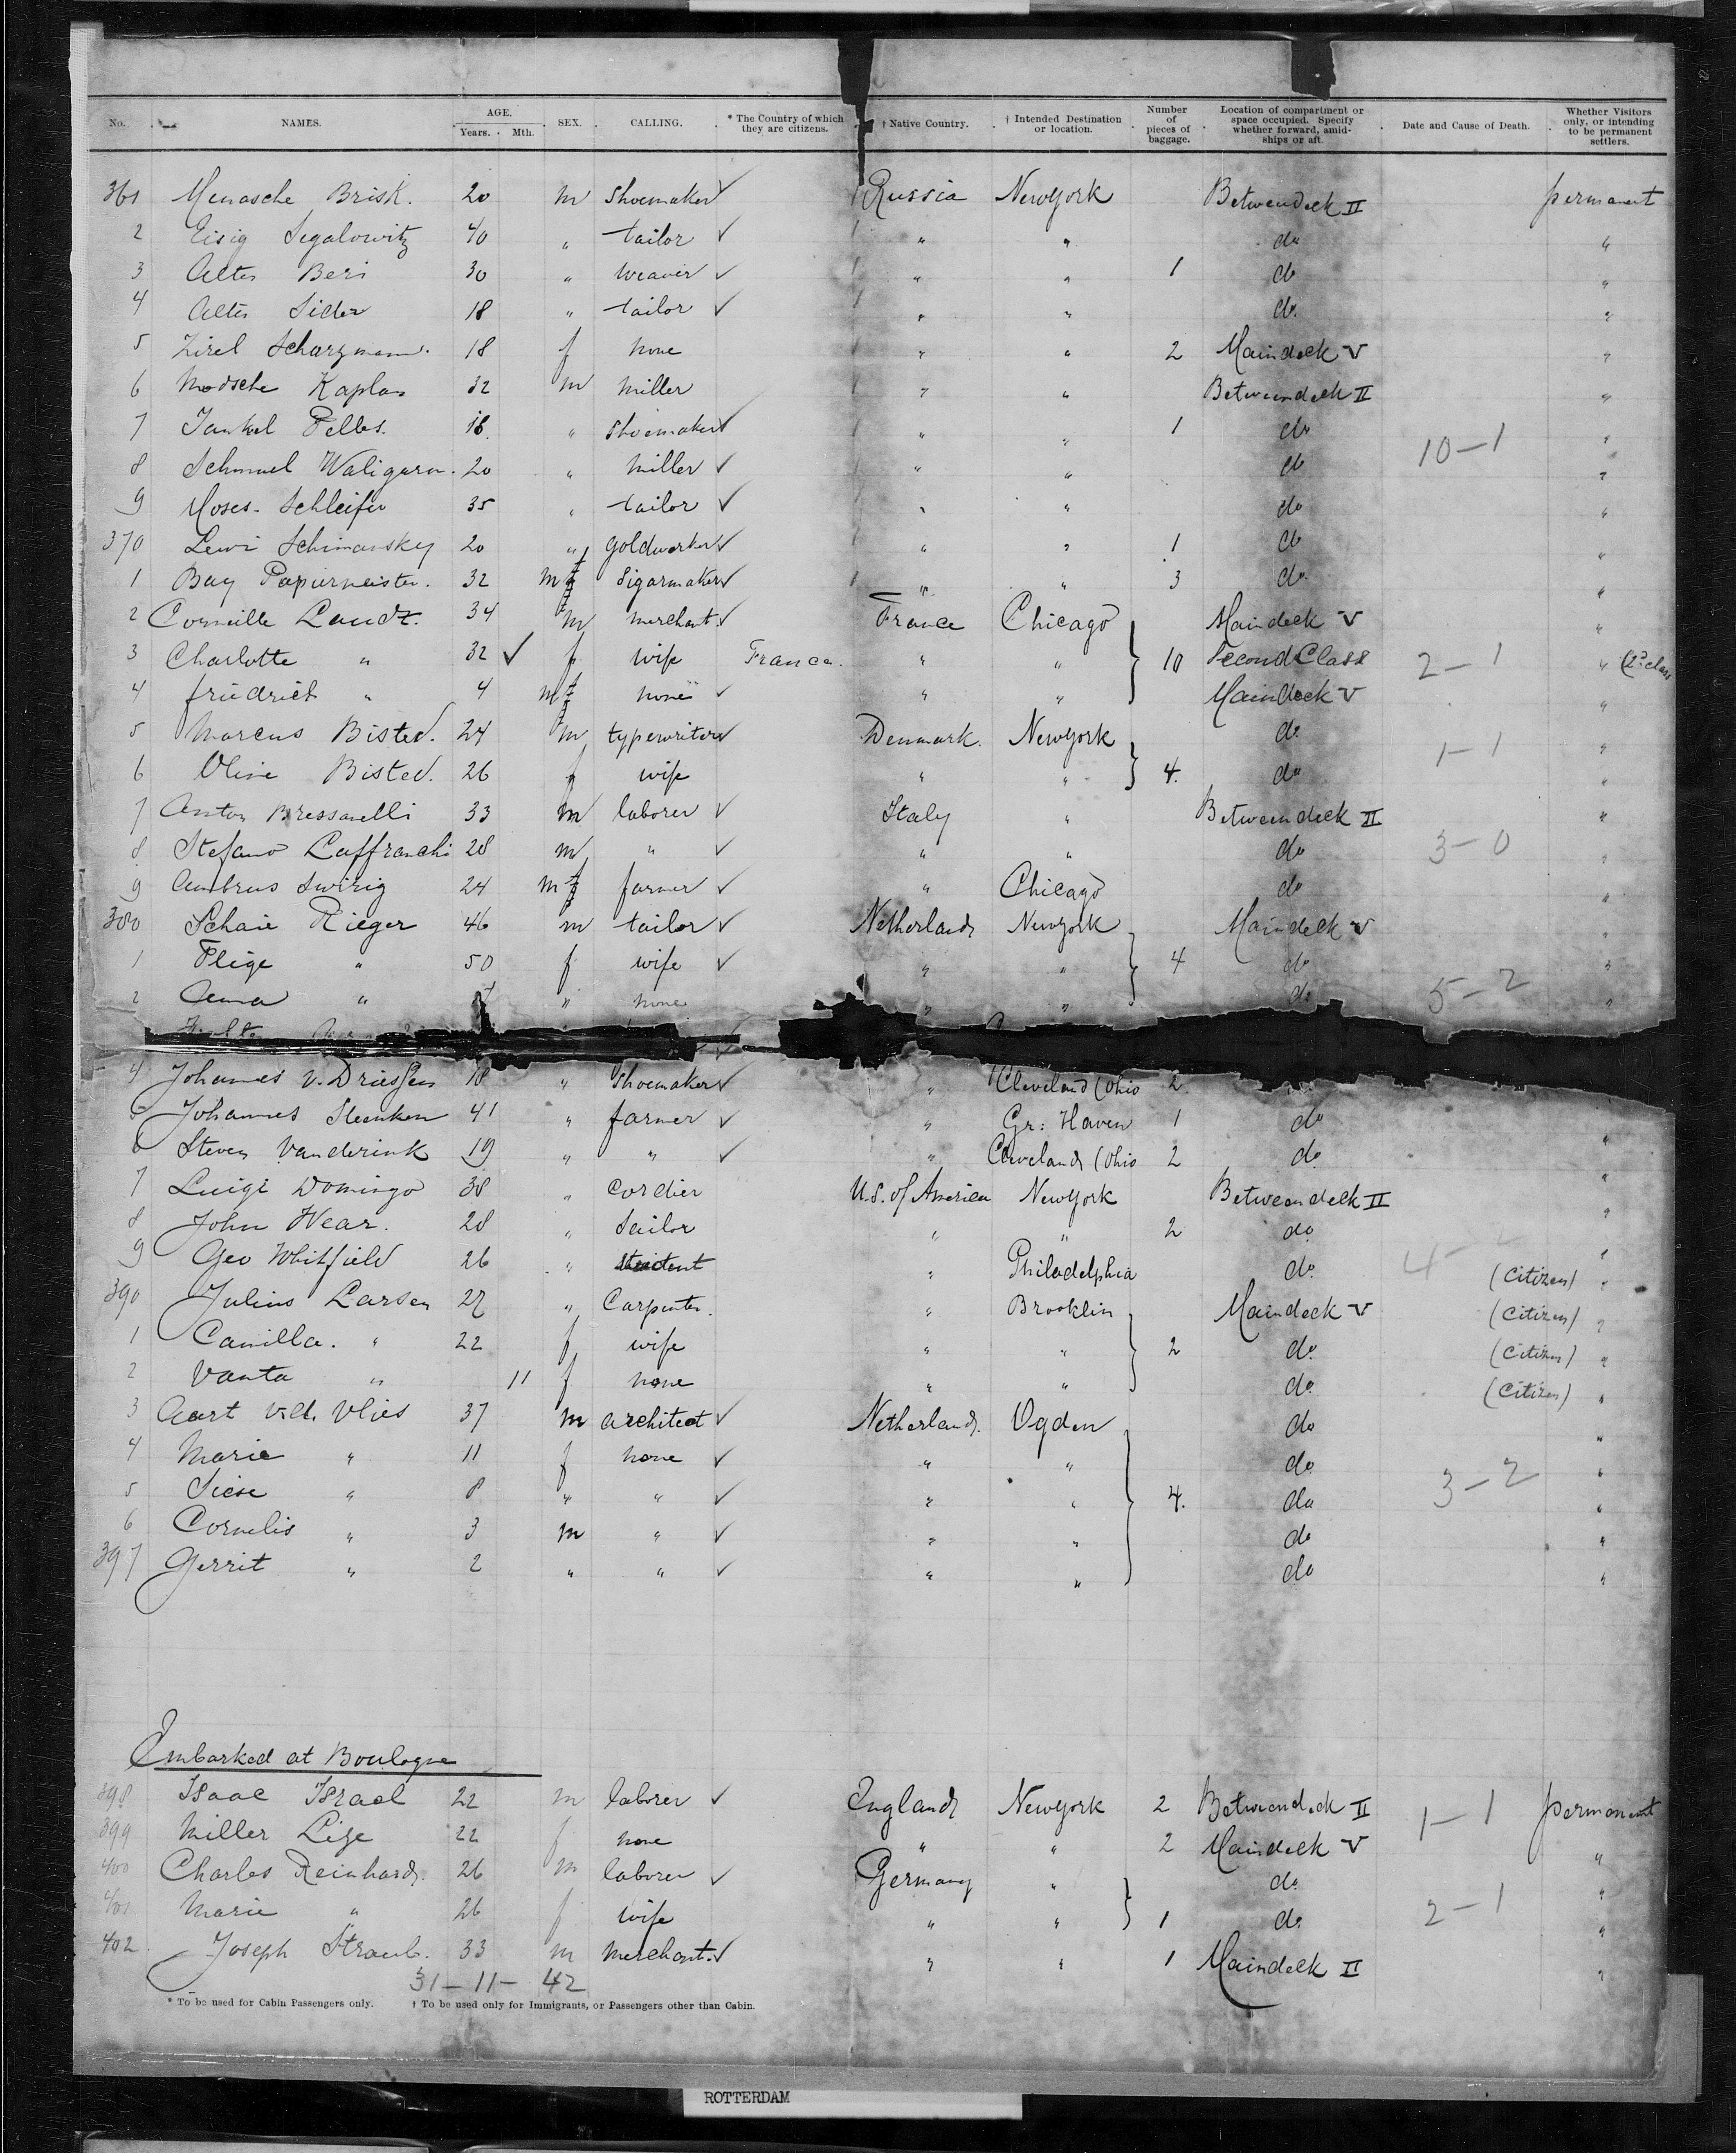 No. NAMES. AGE. Years. Mth. SEX. CALLING. * The Country of which they are citizens. † Native Country. † Intended Destination or location. Number of pieces of baggage. Location of compartment or space occupied. Specify whether forward, amidships or aft. Date and Cause of Death. Whether Visitors only, or intending to be permanent settlers.
361 Menasche Brisk. 20 m Shoemaker ✓ 1 Russia Newyork Betweendeck II permanent
2 Eisig Segalowitz 40 " tailor ✓ 1 " " do "
3 Alter Beri 30 " weaver ✓ 1 " " 1 do "
4 Alter Sider 18 " tailor ✓ 1 " " do. "
5 Zirel 18 f none 1 " " 2 Maindeck V "
6 Modsche Kaplan 32 m miller 1 " " Betweendeck II "
7 Jankel Pelles. 18. " Shoemaker ✓ 1 " " 1 do "
10-1
8 Schmuel 20 " miller ✓ 1 " " do "
9 Moses Schleifer 35 " tailor ✓ 1 " " do "
370 Lewi Schimansky 20 " goldworker ✓ 1 " " 1 do "
1 Bay Papiermeister. 32 m f Sigarmaker ✓ 1 " " 3 do. "
2 Corneille Landr. 34 m merchant. ✓ France Chicago Maindeck V "
3 Charlotte " 32 ✓ f wife France. " " 10 Second Class 2-1 " (2d class
4 friedrich " 4 m f none ✓ " " Maindeck V "
5 Marcus Bisted. 24 m typewriter ✓ Denmark. Newyork do 1-1 "
6 Oline Bisted. 26 f wife " " 4. do "
7 Anton Bressanelli 33 m laborer ✓ Italy " Betweendeck II "
8 Stefano Laffranchi 28 m " ✓ " " do 3-0 "
9 Ambrus Swirig 24 m f farmer ✓ " Chicago do "
380 Schaie Rieger 46 m tailor ✓ Netherlands Newyork Maindeck V "
1 Flige " 50 f wife ✓ " " 4 do "
2 Anna " " none " " do 5-2 "
4 Johannes v. Driessen 18 " Shoemaker ✓ " Cleveland (Ohio 2
Johannes Sleenken 41 " farmer ✓ " Gr: Haven 1 do "
6 Steven Vanderink 19 " " ✓ " Cleveland (Ohio 2 do. "
7 Luigi Domingo 38 " Cordier U.S. of America Newyork Betweendeck II "
8 John Wear. 28 " Sailor " " 2 do. "
9 Geo Whitfield 26 " student " Philadelphia do. (Citizen) "
390 Julius Larsen 27 " Carpenter. " Brooklin Maindeck V (Citizen) "
1 Camilla. " 22 f wife " " 2 do. (Citizen) "
2 Vanta " 11 f none " " do. (Citizen) "
3 Aart v.d. Vlies 37 m architect ✓ Netherlands. Ogden do "
4 Marie " 11 f none ✓ " " do "
3-2
5 Siese " 8 " " ✓ " " 4. do "
6 Cornelis " 3 m " ✓ " " do "
397 Gerrit " 2 " " ✓ " " do "
Embarked at Boulogne
398 Isaac Israel 22 m laborer ✓ England Newyork 2 Betweendeck II 1-1 permanent
399 Miller Lize 22 f none " " 2 Maindeck V "
400 Charles Reinhard. 26 m laborer ✓ Germany " do. "
401 Marie " 26 f wife " " 1 do. 2-1 "
402. Joseph Straub. 33 m merchant. ✓ " " 1 Maindeck II "
31-11- 42
* To be used for Cabin Passengers only. † To be used only for Immigrants, or Passengers other than Cabin.
ROTTERDAM